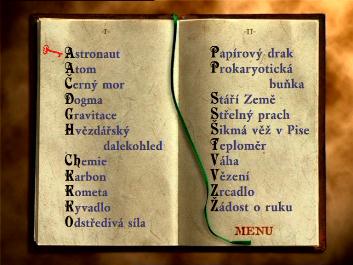 -I-
Astronaut
Atom
Černý mor
Dogma
Gravitace
Hvězdářský
dalekohled
Chemie
Karbon
Kometa
Kyvadlo
Odstředivá síla
-II-
Papírový drak
Prokaryotická
buňka
Stáří Země
Střelný prach
Šikmá věž v Pise
Teploměr
Váha
Vězení
Zrcadlo
Žádost o ruku
MENU